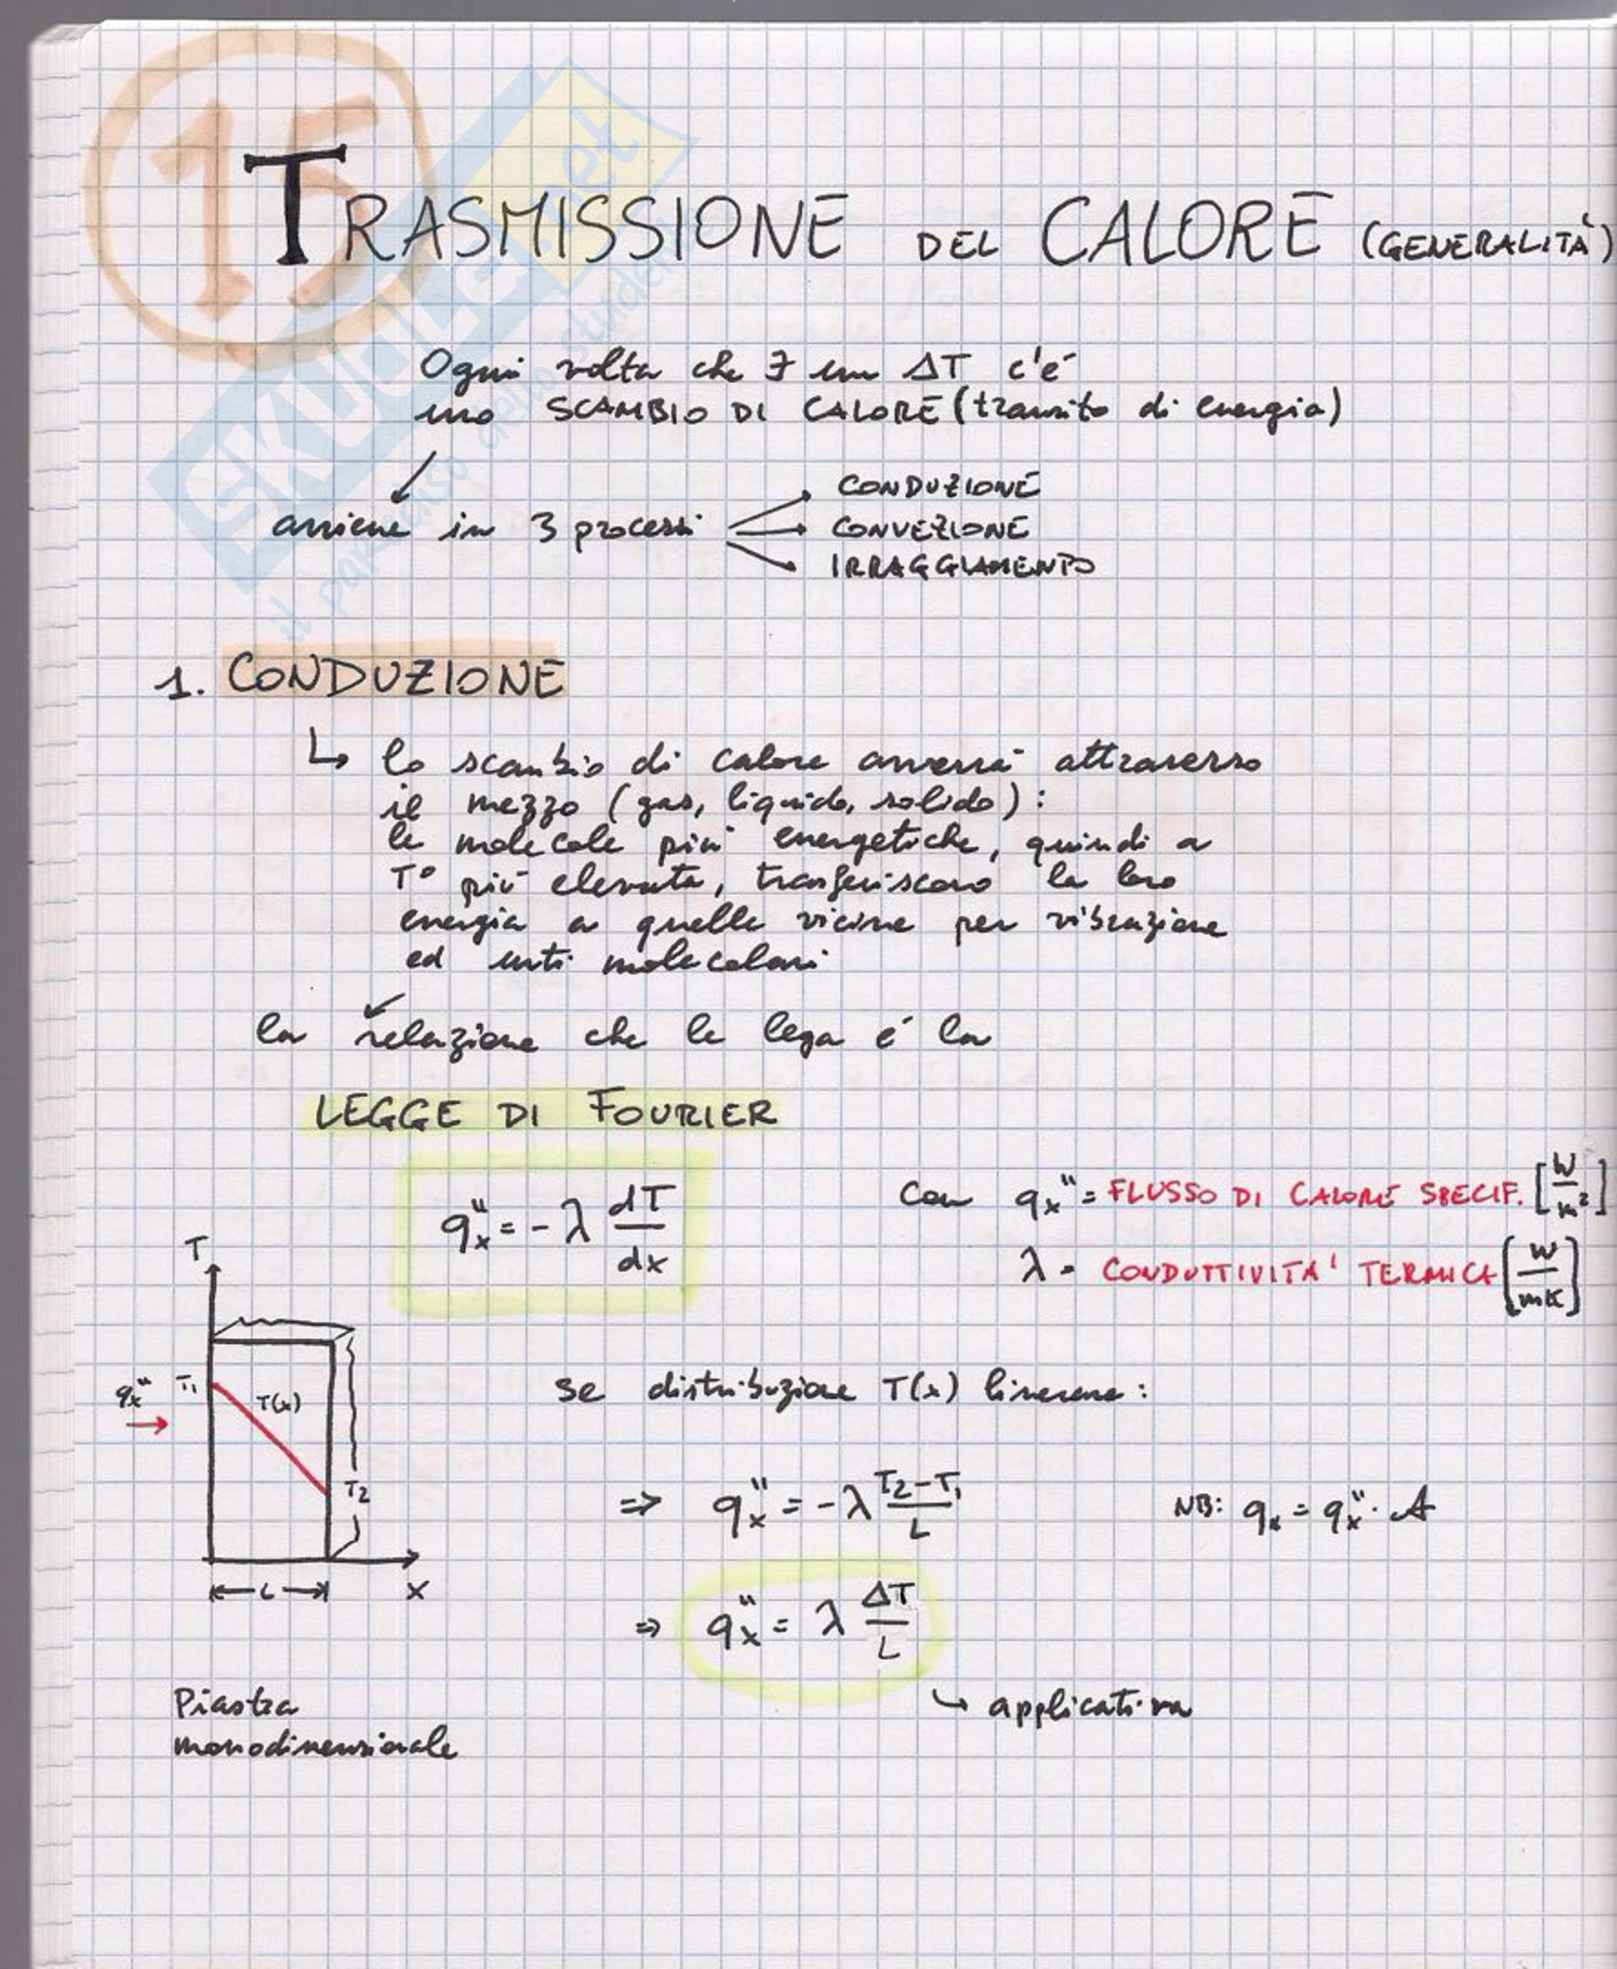 15
TRASMISSIONE DEL CALORE (GENERALITÀ)
SKUOLA.net
il paradiso dello studente
Ogni volta che ∃ un ΔT c'é
uno SCAMBIO DI CALORE (transito di energia)
avviene in 3 processi
CONDUZIONE
CONVEZIONE
IRRAGGIAMENTO
1. CONDUZIONE
↳ lo scambio di calore avverrà attraverso
il mezzo (gas, liquido, solido):
le molecole più energetiche, quindi a
T° più elevata, trasferiscono la loro
energia a quelle vicine per vibrazione
ed urti molecolari
la relazione che le lega é la
LEGGE DI FOURIER
q''x = -λ dT/dx
con qx'' = FLUSSO DI CALORE SPECIF. [W/m²]
λ = CONDUTTIVITA' TERMICA [W/mK]
T
qx'' →
T1
T(x)
T2
L
x
se distribuzione T(x) lineare:
⇒ q''x = -λ (T2-T1)/L
NB: qx = q''x · A
⇒ q''x = λ ΔT/L
↳ applicativa
Piastra
monodimensionale